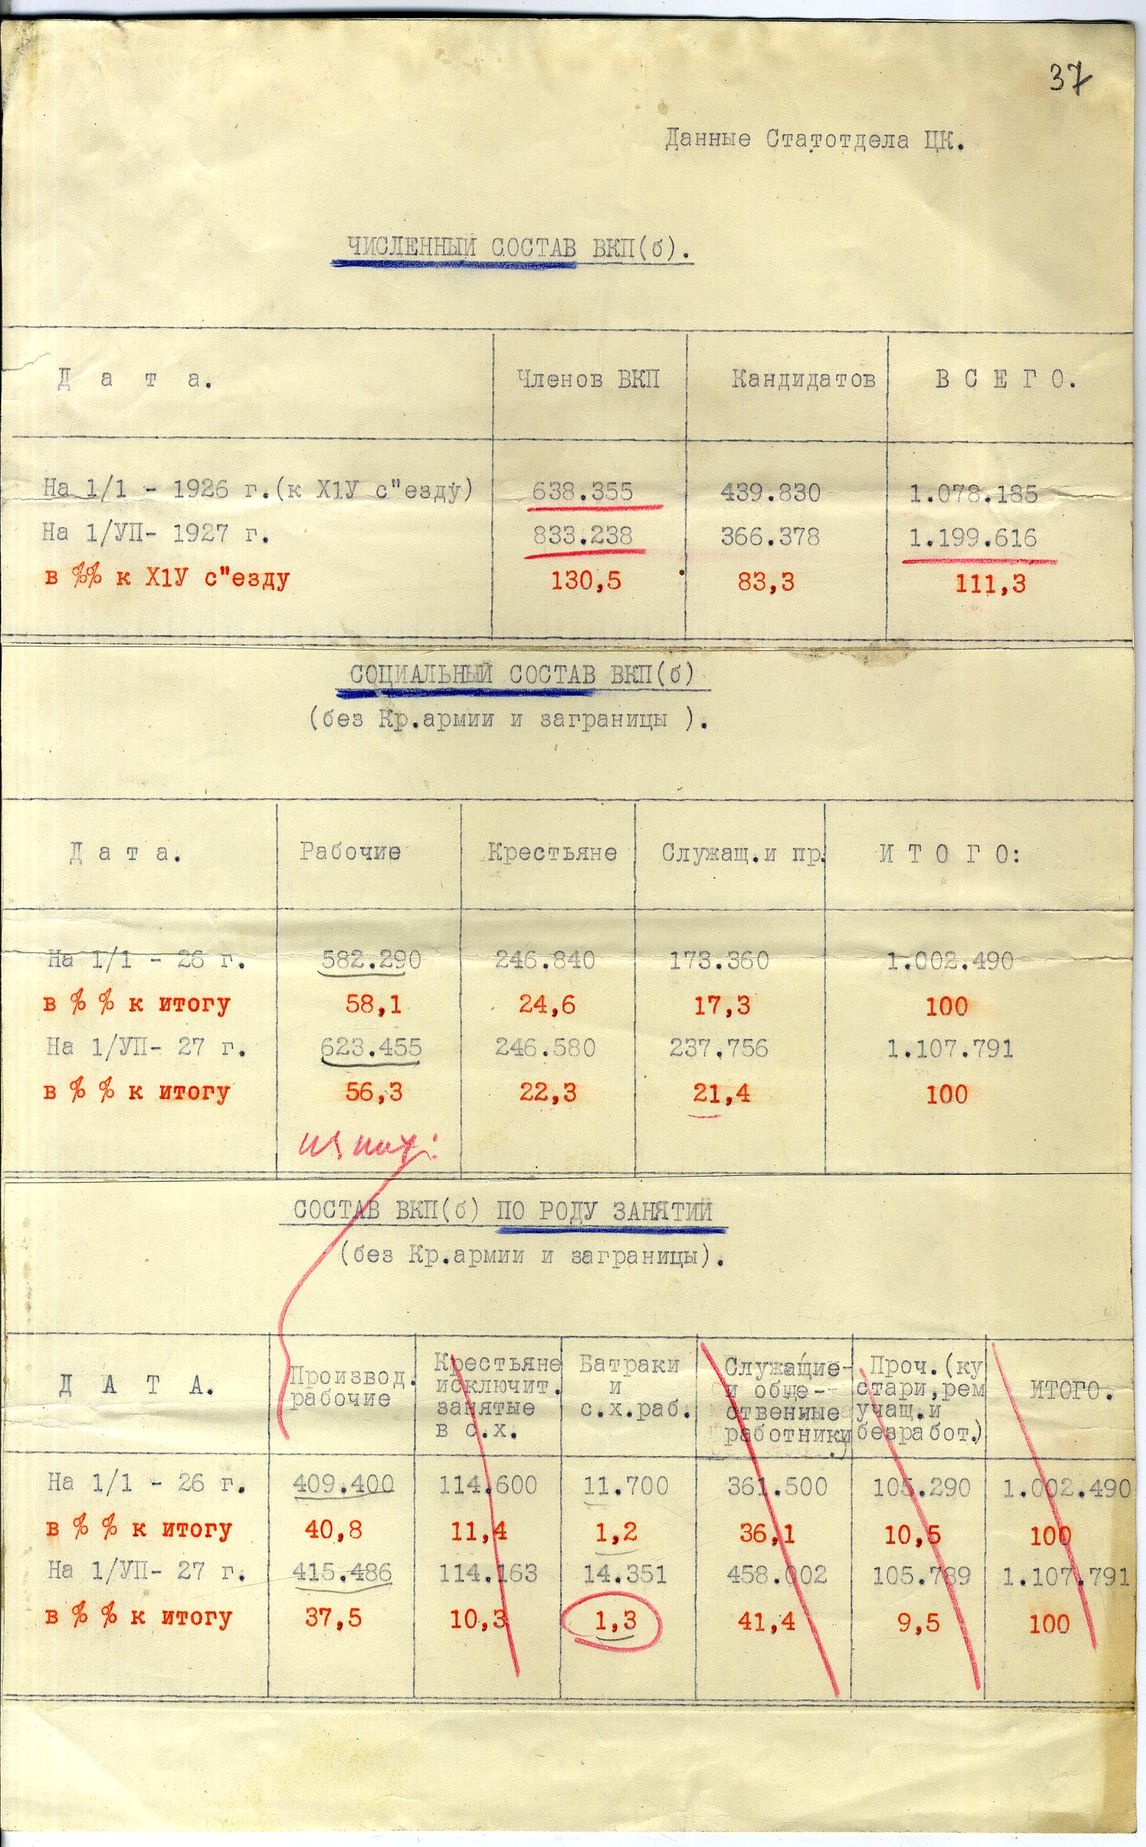 37
Данные Статотдела ЦК.
ЧИСЛЕННЫЙ СОСТАВ ВКП(б).
Д а т а. Членов ВКП Кандидатов В С Е Г О.
На 1/1 - 1926 г.(к Х1У с"езду) 638.355 439.830 1.078.185
На 1/УП- 1927 г. 833.238 366.378 1.199.616
в %% к Х1У с"езду 130,5 83,3 111,3
СОЦИАЛЬНЫЙ СОСТАВ ВКП(б)
(без Кр.армии и заграницы ).
Д а т а. Рабочие Крестьяне Служащ.и пр. И Т О Г О:
На 1/1 - 26 г. 582.290 246.840 173.360 1.002.490
в % % к итогу 58,1 24,6 17,3 100
На 1/УП- 27 г. 623.455 246.580 237.756 1.107.791
в % % к итогу 56,3 22,3 21,4 100
из них:
СОСТАВ ВКП(б) ПО РОДУ ЗАНЯТИЙ
(без Кр.армии и заграницы).
Д А Т А. Производ. рабочие Крестьяне исключит. занятые в с.х. Батраки и с.х.раб. Служащие и обще- ственные работники Проч.(ку стари,рем учащ.и безработ.) ИТОГО.
На 1/1 - 26 г. 409.400 114.600 11.700 361.500 105.290 1.002.490
в % % к итогу 40,8 11,4 1,2 36,1 10,5 100
На 1/УП- 27 г. 415.486 114.163 14.351 458.002 105.789 1.107.791
в % % к итогу 37,5 10,3 1,3 41,4 9,5 100